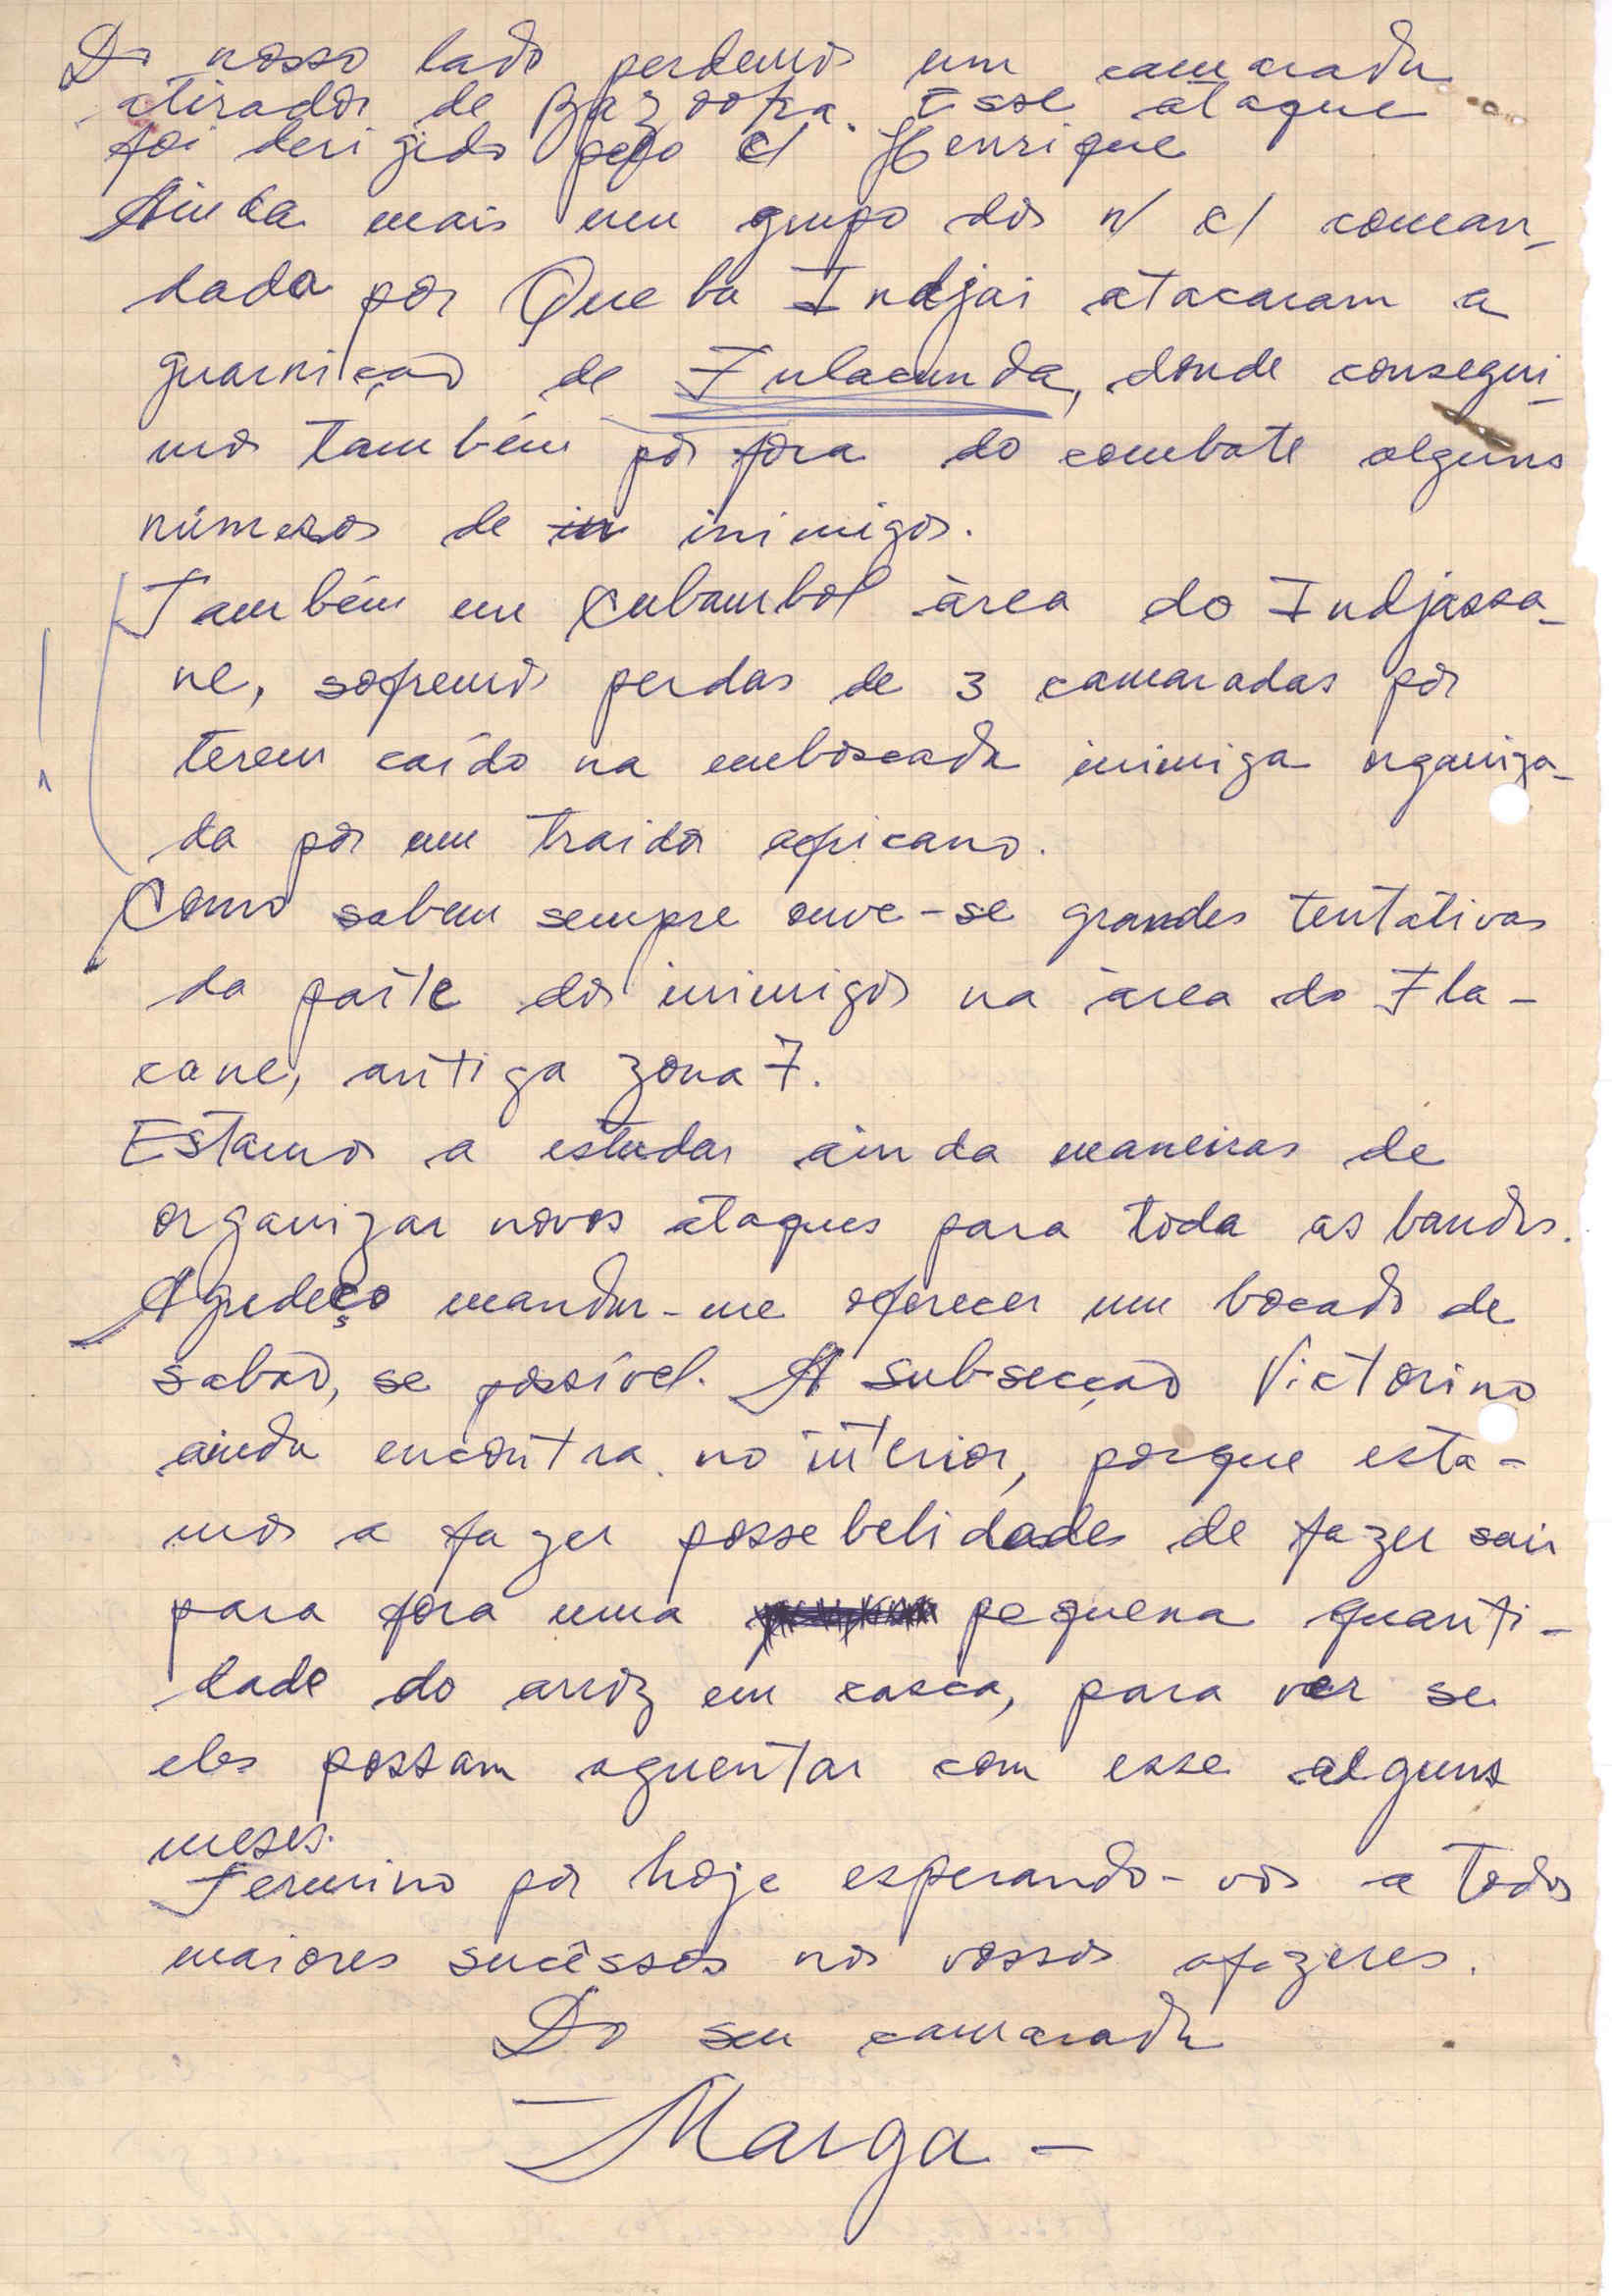 Do nosso lado perdemos um camarada
atirador de Bazooka. Esse ataque
foi derigido pelo c/ Henrique
Ainda mais um grupo dos n/ c/ coman-
dada por Queba Indjai atacaram a
guarnição de Fulacunda, donde consegui-
mos também pôr fora do combate alguns
números de in inimigos.
Também em Cubambol àrea do Indjassa-
ne, sofremos perdas de 3 camaradas por
terem caído na emboscada inimiga organiza-
da por um traidor africano.
Como sabem sempre ouve-se grandes tentativas
da parte dos inimigos na àrea do Fla-
cane, antiga zona 7.
Estamos a estudar ainda maneiras de
organizar novos ataques para toda as bandas.
Agredeço mandar-me oferecer um bocado de
sabão, se possível. A subsecção Victorino
ainda encontra no interior, porque esta-
mos a fazer possebelidades de fazer sair
para fora uma pequena quanti-
dade do arroz em casca, para ver se
eles possam aguentar com esse alguns
meses.
Termino por hoje esperando-vos a todos
maiores sucêssos nos vossos afazeres.
Do seu camarada
- Marga -